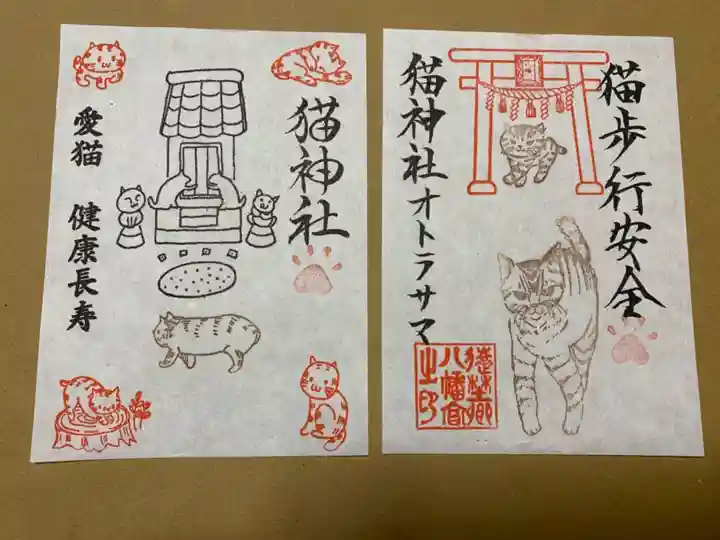 猫神社
愛猫 健康長寿
猫歩行安全
猫神社オトラサマ
遠埜郷
八幡宮
之印